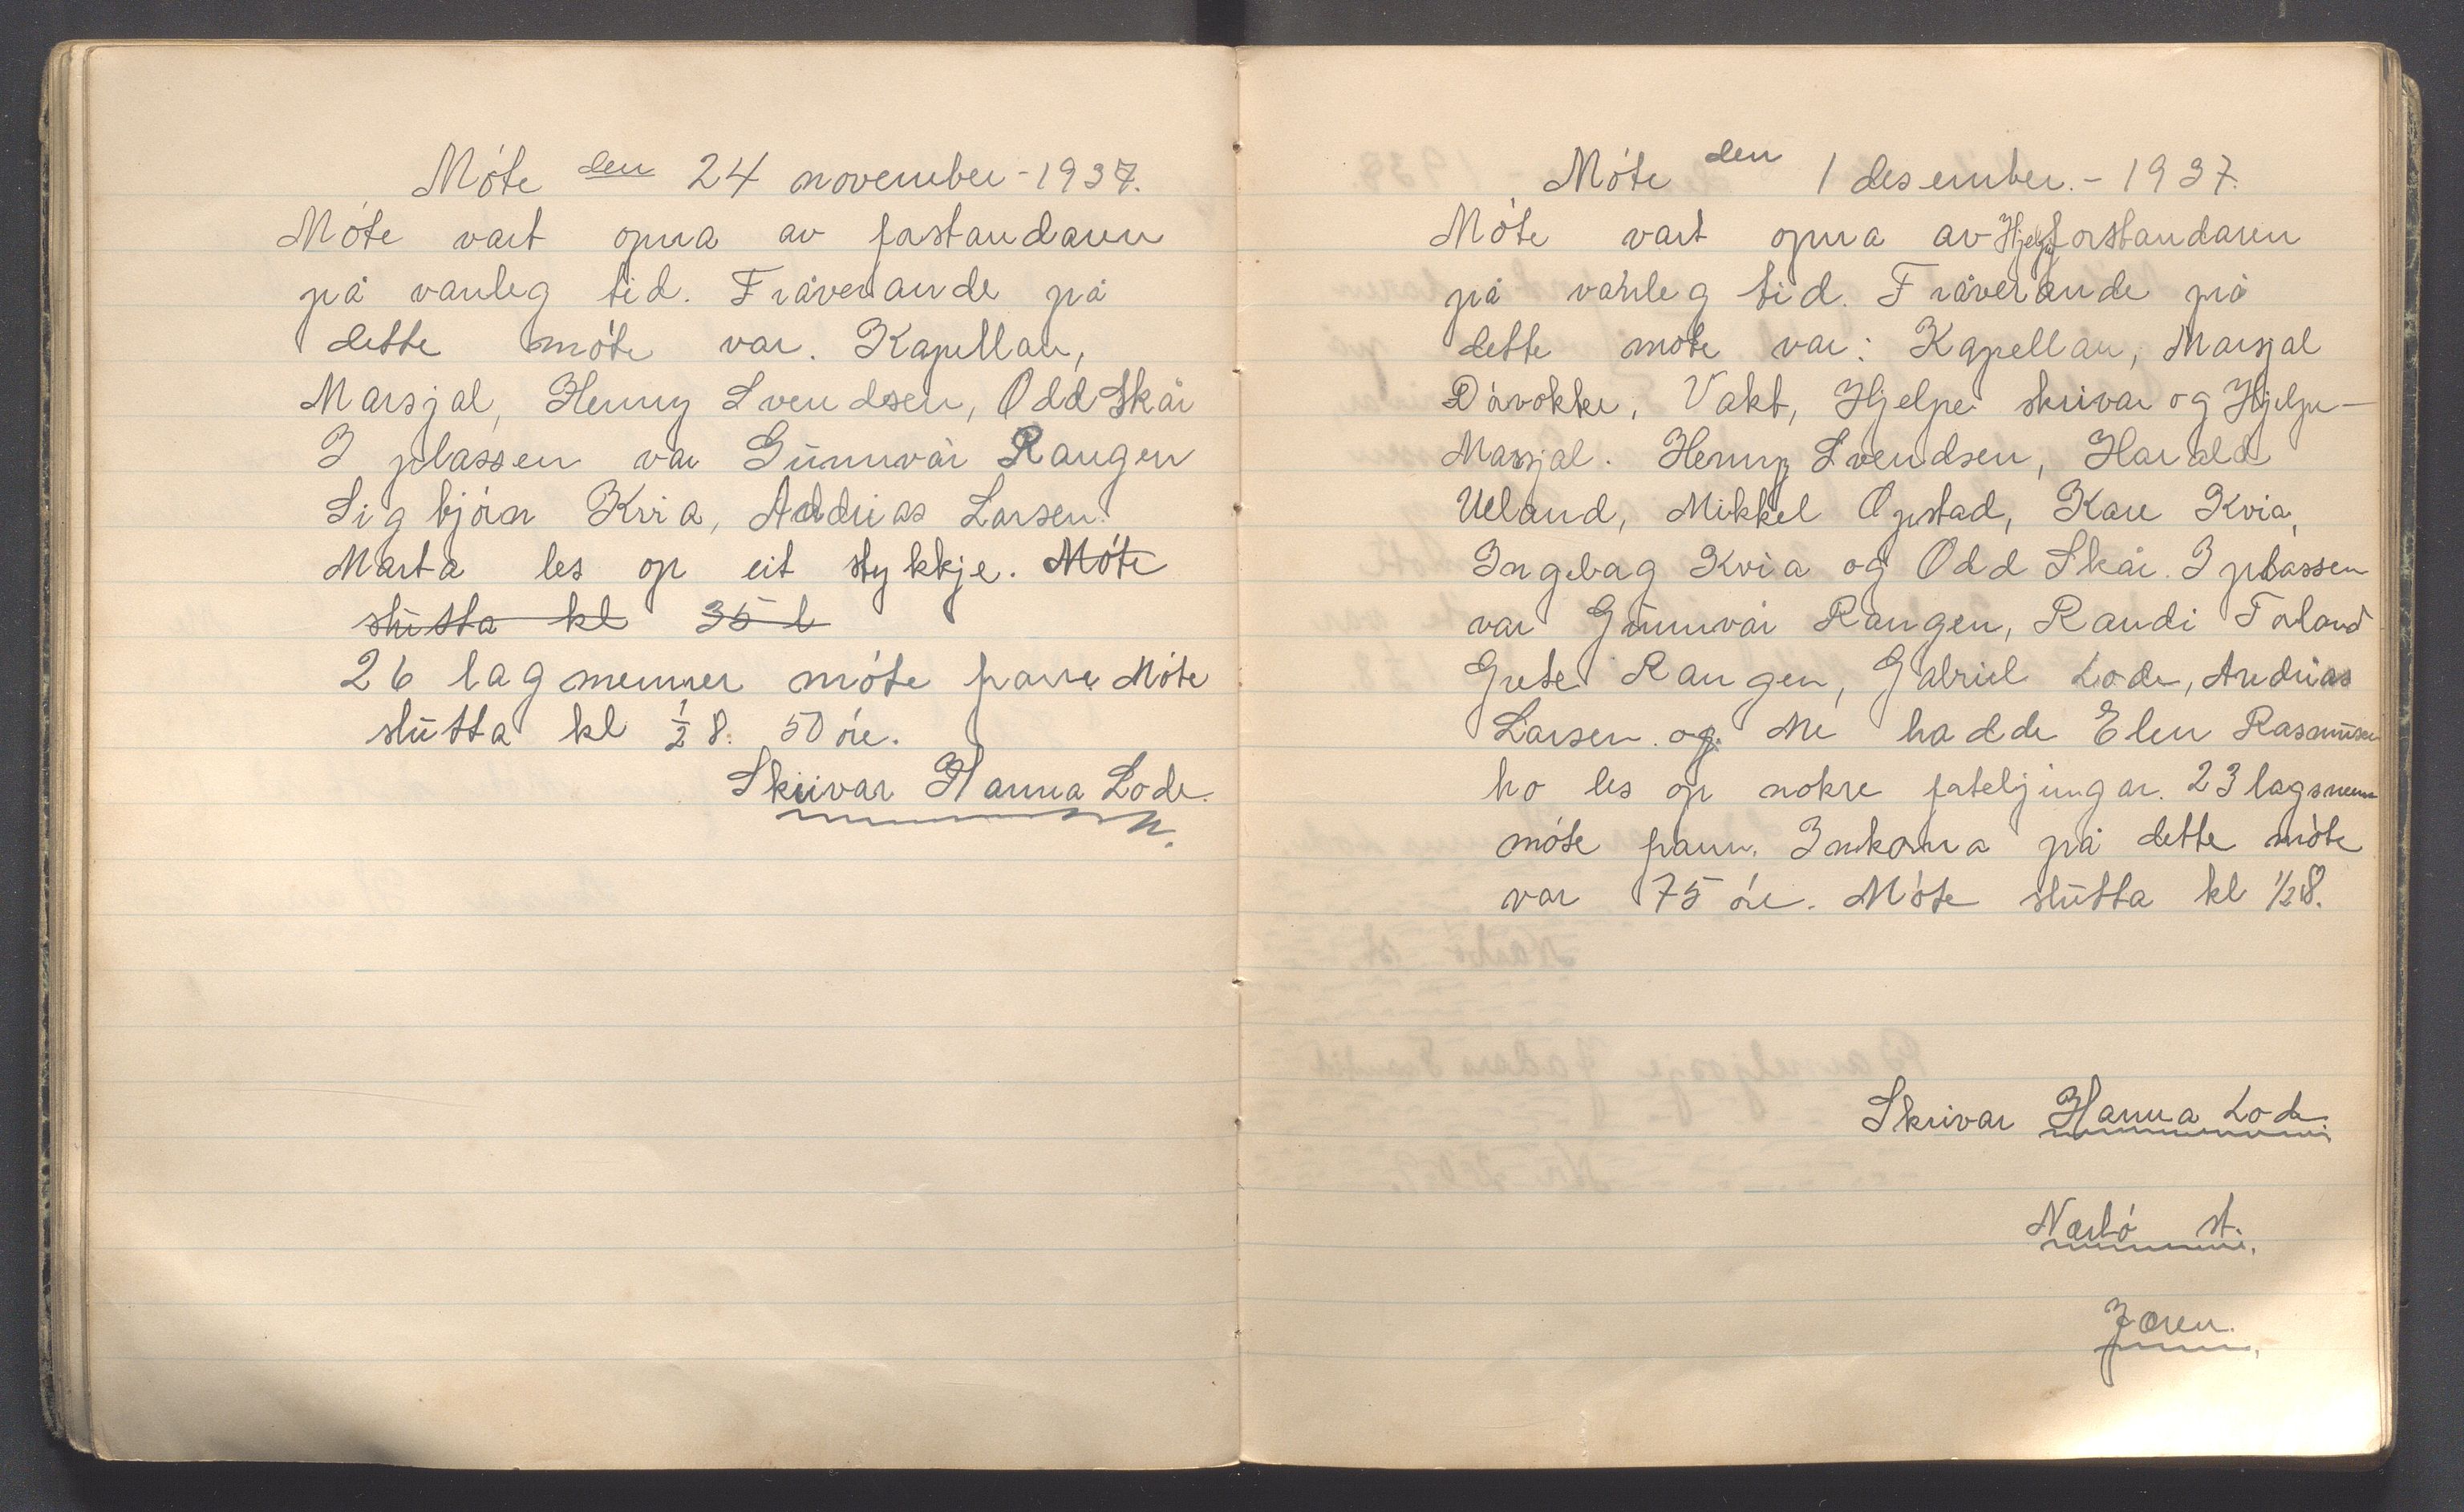 Móte den 24 november - 1937.
Móte vart opna av fastandaren
på vanleg tid. Fråverande på
dette móte var. Kapellan,
Marsjal, Henny Svendsen, Odd Skår
I plassen var Gunnvår Raugen
Sigbjórn Kvia, Andrias Larsen.
Marta les op eit stykkje. Móte
slutta kl 35 l
26 lagmenner móte fram Móte
slutta kl ½ 8. 50 óre.
Skrivar Hanna Lode.
Móte den 1 desember. - 1937.
Móte vart opna av Hjelpeforstandaren
på vanleg tid. Fråverande på
dette móte var: Kapellan, Marsjal
Dóvokter, Vakt, Hjelpe skrivar og Hjelpe-
Marsjal. Henny Svendsen, Harald
Ueland, Mikkel Opstad, Kare Kvia,
Ingebag Kvia og Odd Skår. I plassen
var Gunnvår Raugen, Randi Torland
Grete Raugen, Gabriel Lode, Andrias
Larsen. og. Me hadde Elen Rasmusen
ho les op nokre fateljingar. 23 lagsmenn
móte fram. Innkoma på dette móte
var 75 óre. Móte slutta kl ½8.
Skrivar Hanna Lode.
Nærbó st.
Jæren.